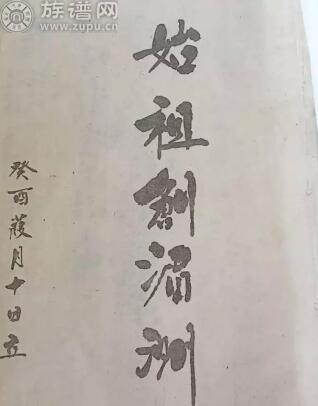 族谱网
www.zupu.cn
始祖創湄洲
癸酉葭月十日立